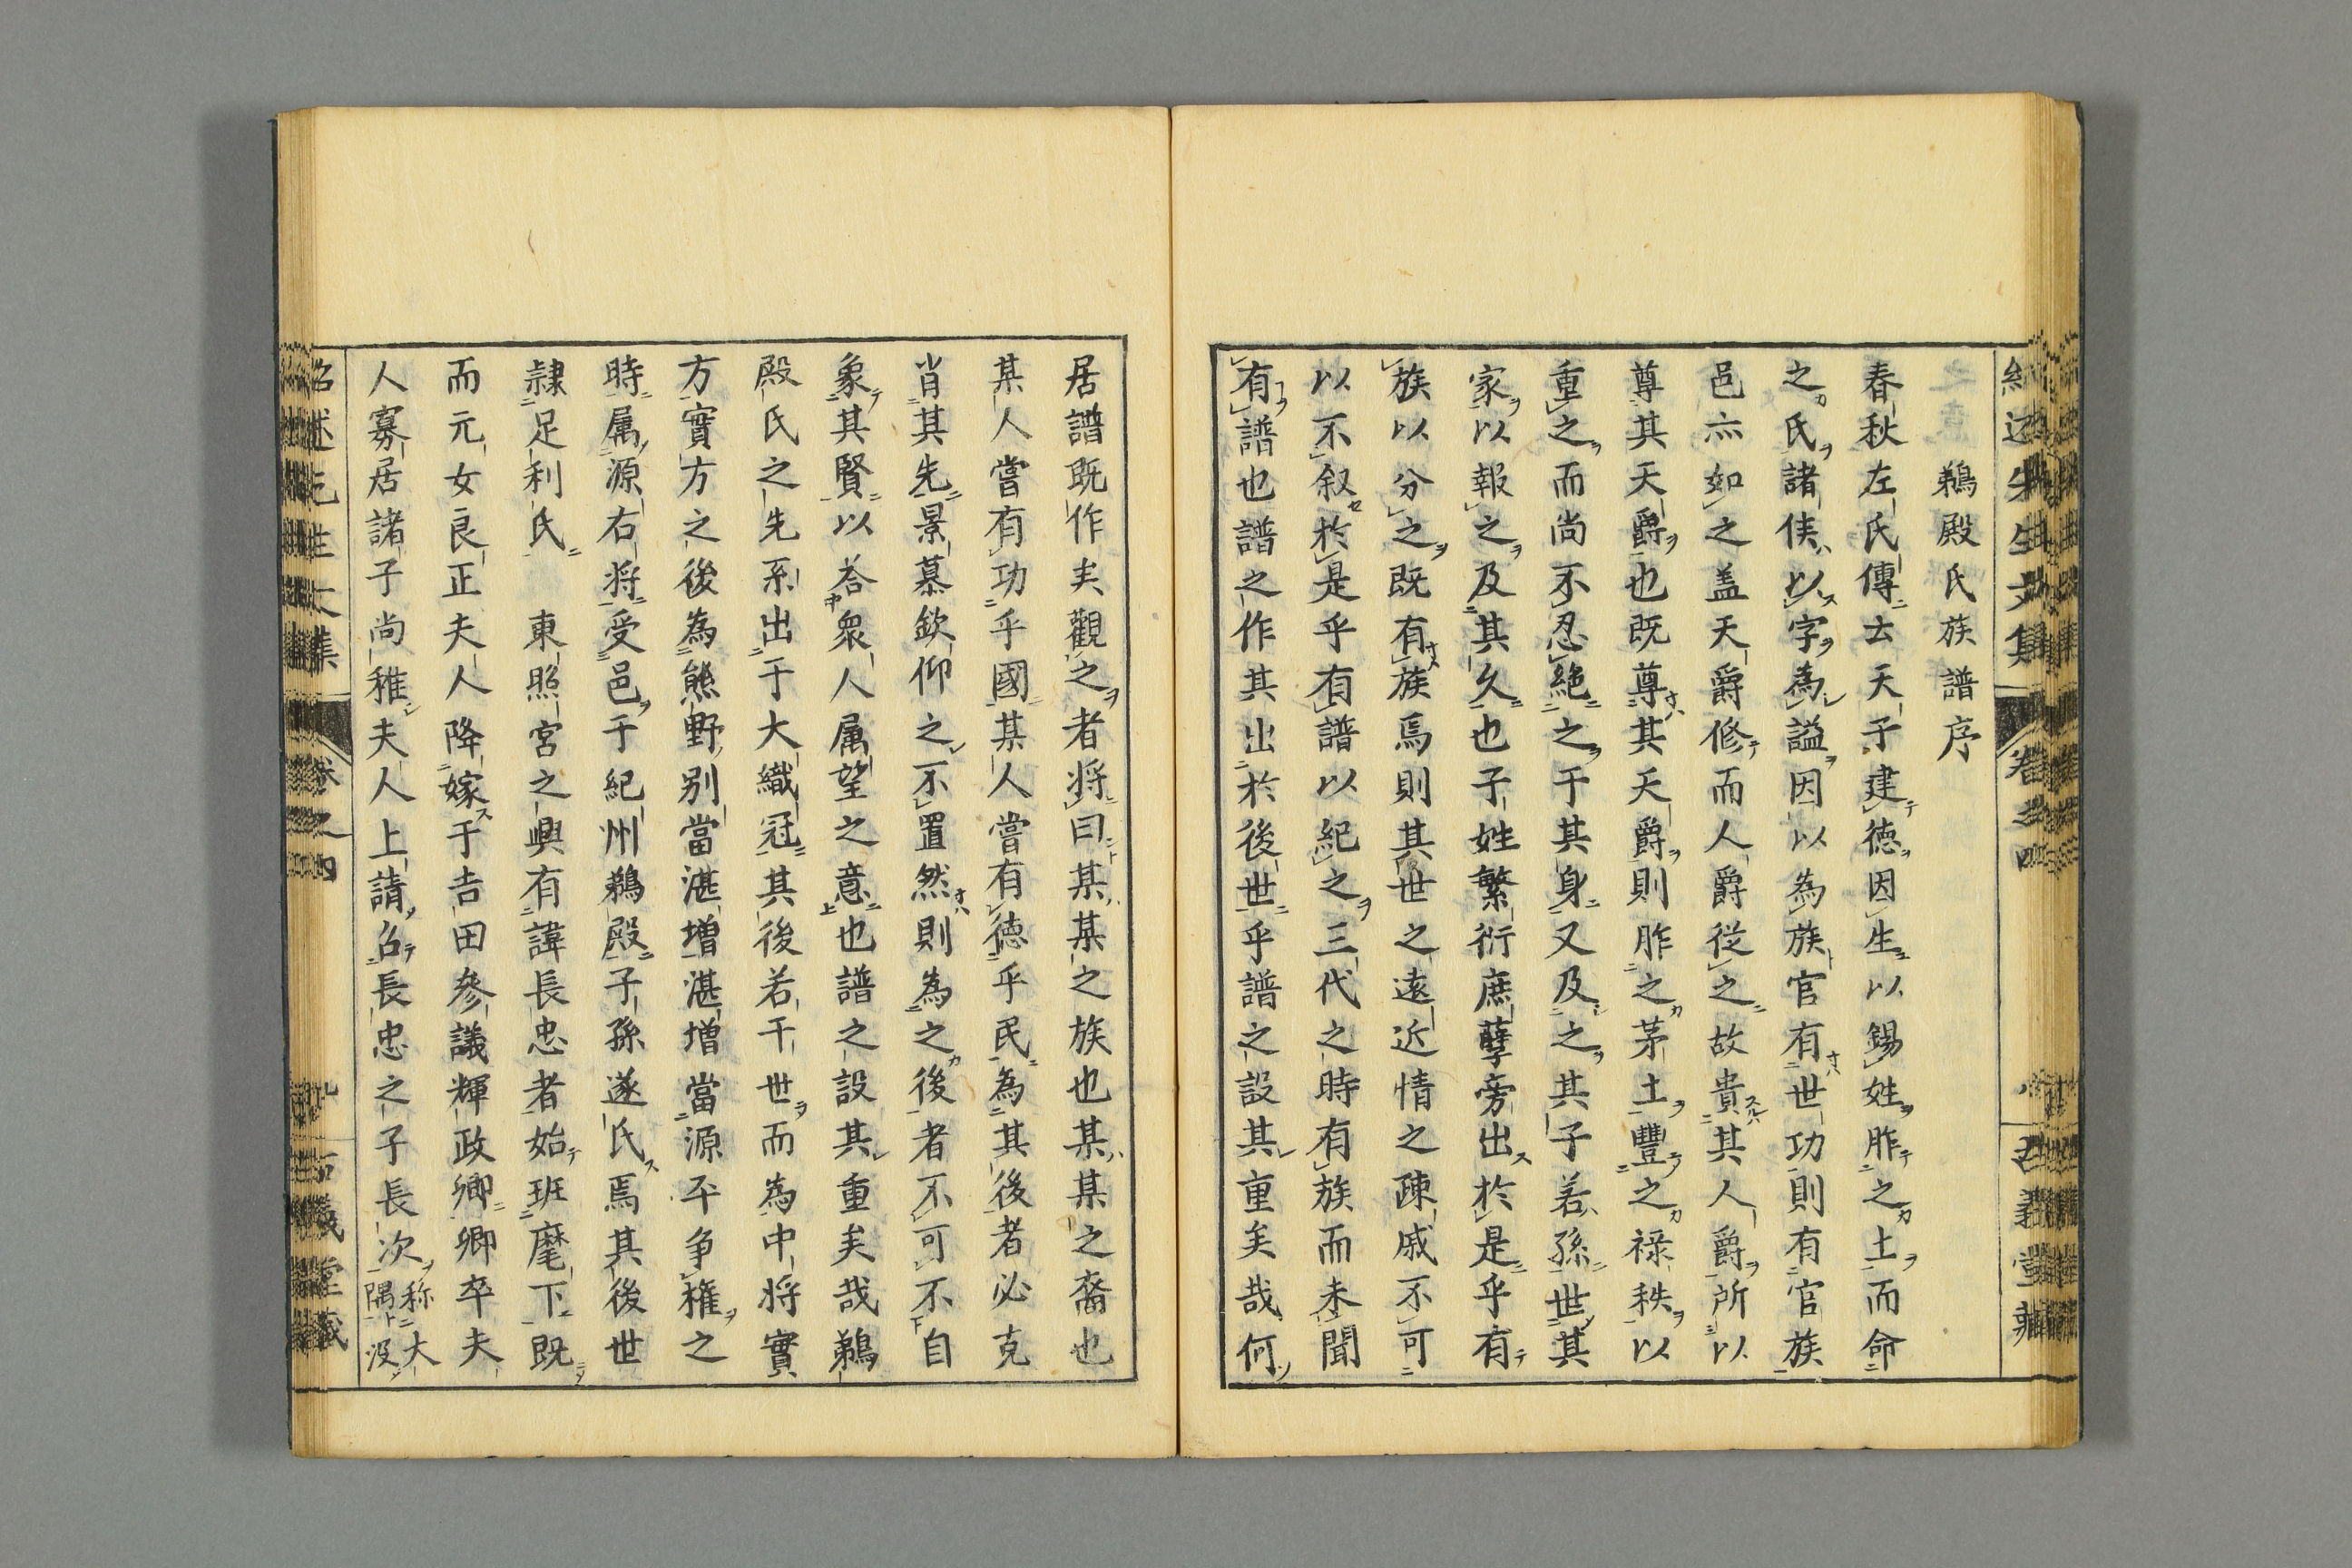 鵜殿氏族譜序
春秋左氏傳云天子建德因生以錫姓胙之土而命
之氏諸侯以字為謚因以為族官有世功則有官族
邑亦如之盖天爵修而人爵從之故貴其人爵所以
尊其天爵也既尊其天爵則胙之茅土豐之禄秩以
重之而尚不忍絶之于其身又及之其子若孫世其
家以報之及其久也子姓繁衍庶孽旁出於是乎有
族以分之既有族焉則其世之遠近情之疎戚不可
以不叙於是乎有譜以紀之三代之時有族而未聞
有譜也譜之作其出於後世乎譜之設其重矣哉何
居譜既作矣觀之者将曰某某之族也某某之裔也
某人嘗有功乎國某人嘗有德乎民為其後者必克
肖其先景慕欽仰之不置然則為之後者不可不自
象其賢以荅衆人属望之意也譜之設其重矣哉鵜
殿氏之先系出于大織冠其後若干世而為中将實
方實方之後為熊野别當湛増湛増當源平争權之
時属源右将受邑于紀州鵜殿子孫遂氏焉其後世
隷足利氏　東照宮之興有諱長忠者始班麾下既
而元女良正夫人降嫁于吉田參議輝政卿卿卒夫
人寡居諸子尚稚夫人上請召長忠之子長次称大隅上没
紹述先生文集 卷之四 八 古義堂藏
紹述先生文集 卷之四 九 古義堂藏